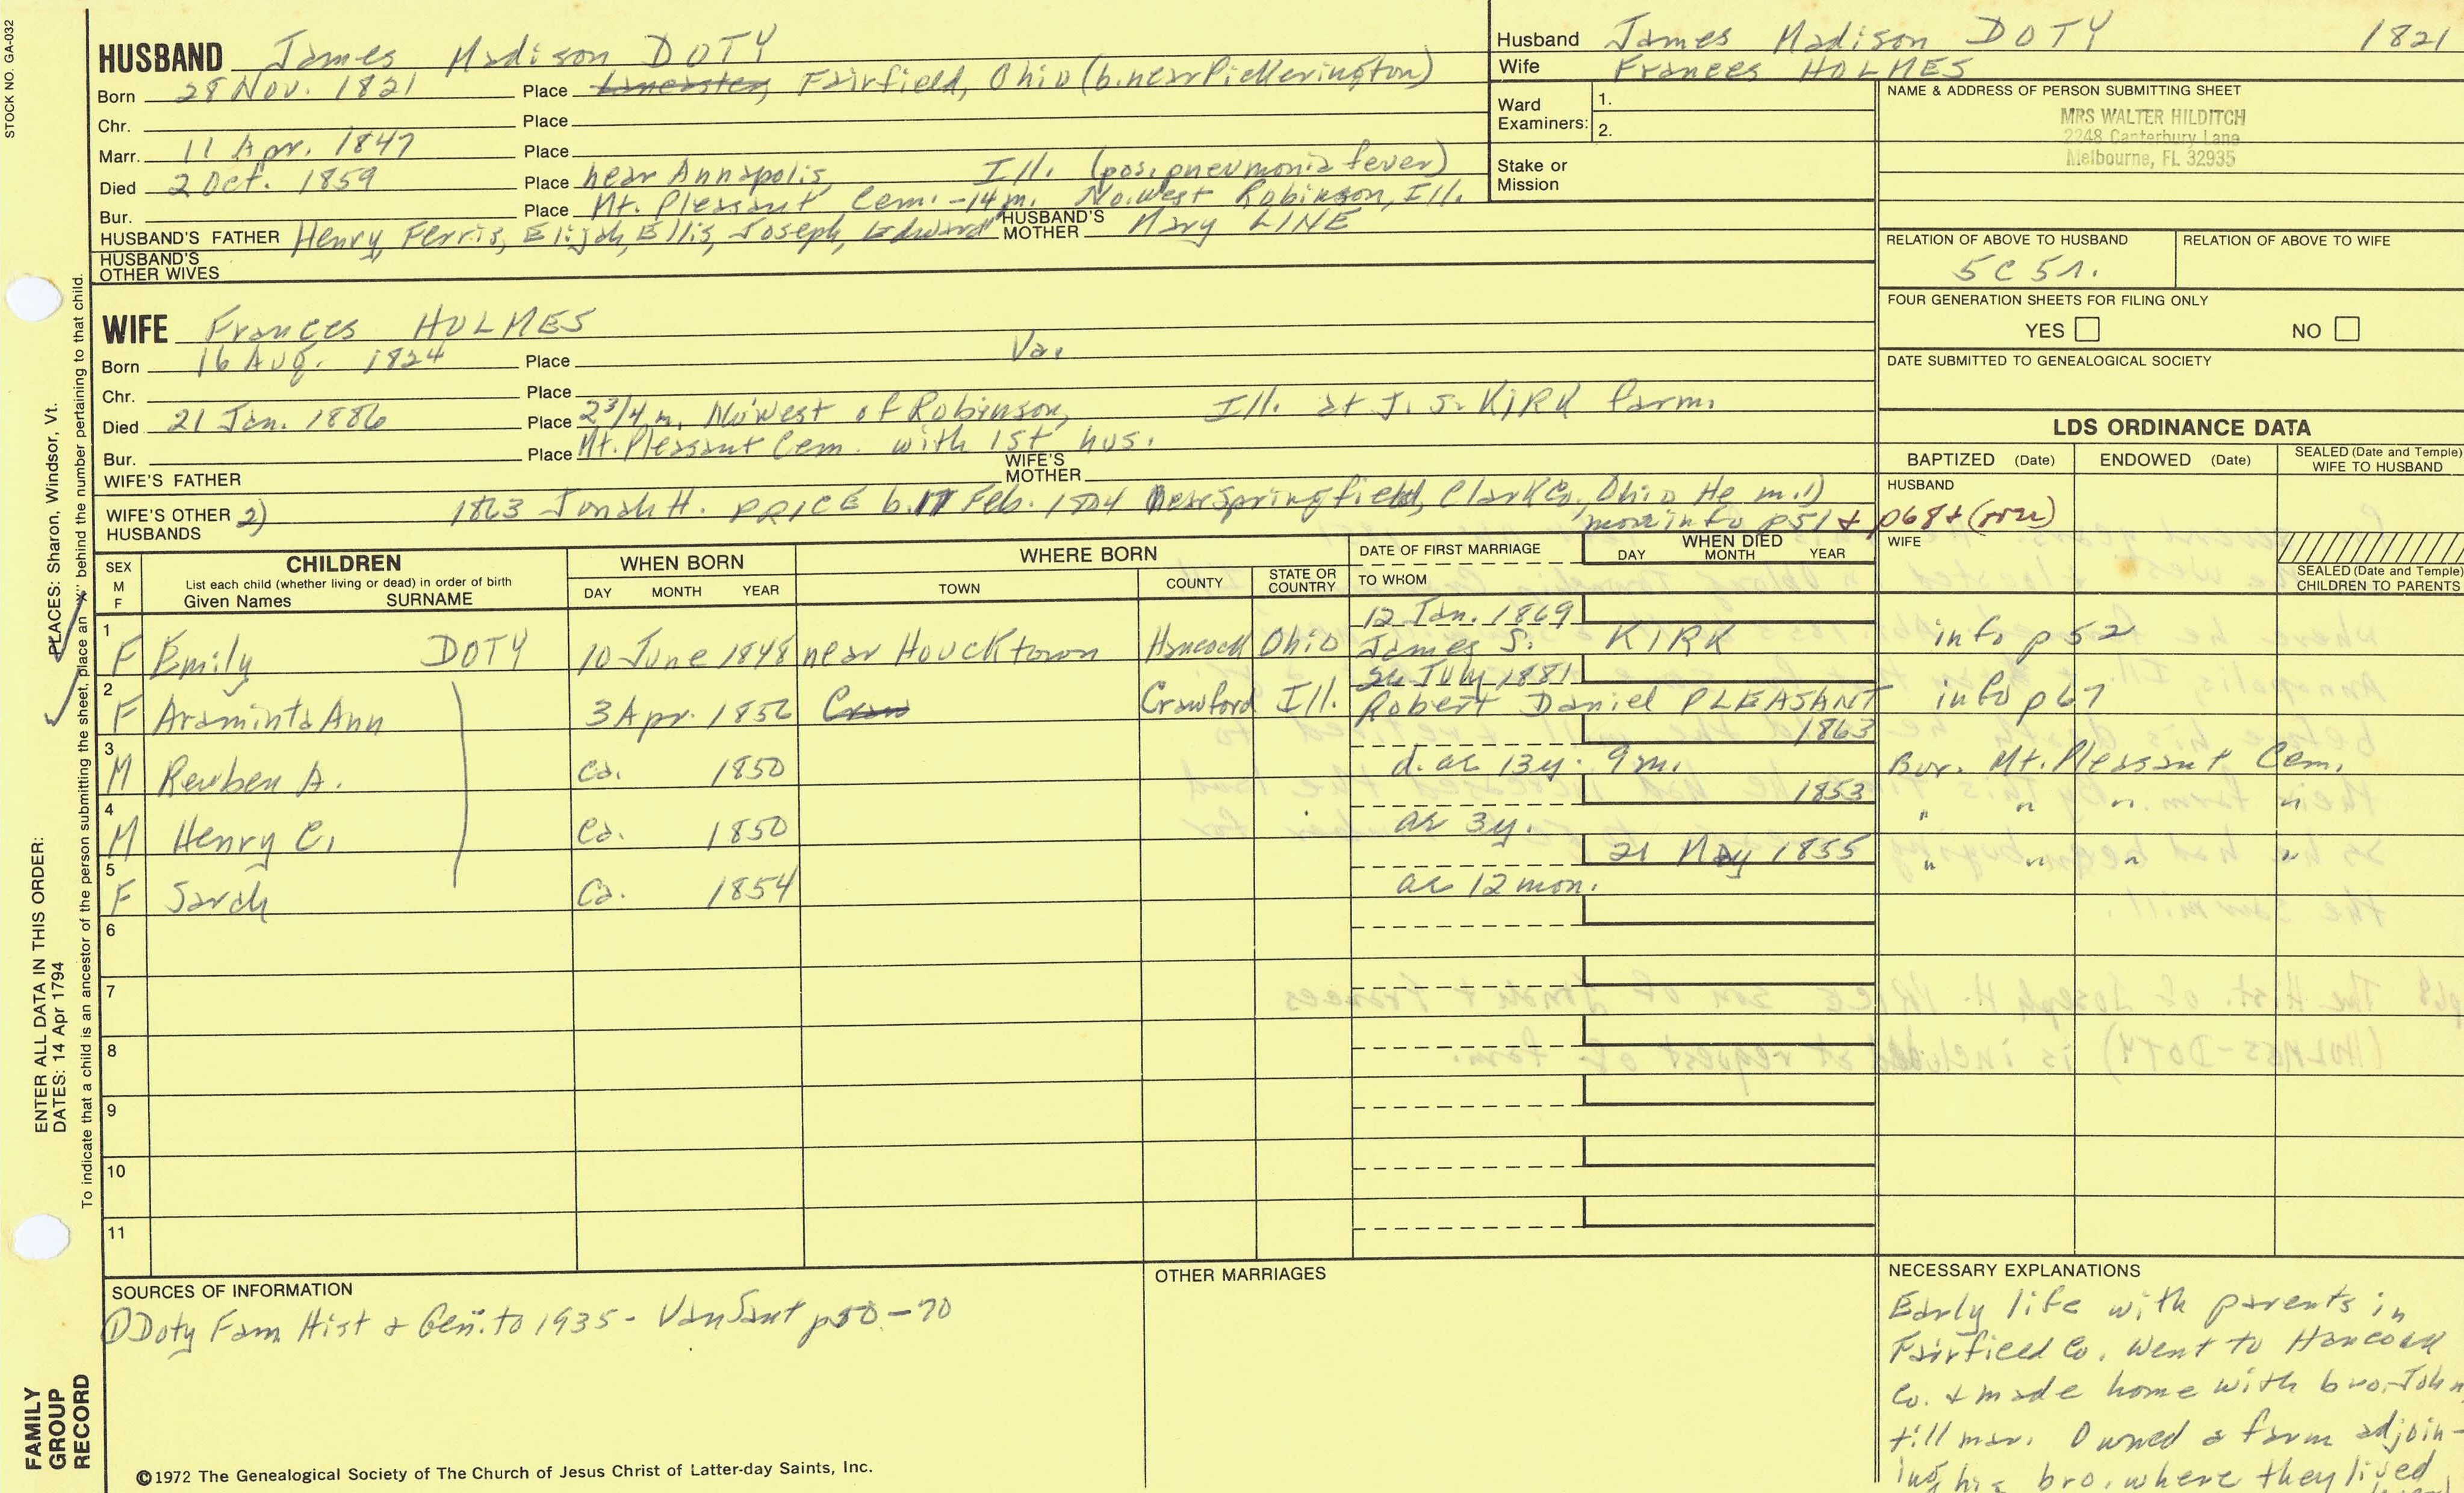 STOCK NO. GA-032
HUSBAND James Madison DOTY
Born 28 Nov. 1821 Place Lancaster, Fairfield, Ohio (b. near Pickerington)
Chr. Place
Marr. 11 Apr. 1847 Place
Died 2 Oct. 1859 Place near Annapolis, Ill. (pos. pneumonia fever)
Bur. Place Mt. Pleasant Cem. - 14 m. No. west Robinson, Ill.
HUSBAND'S FATHER Henry, Ferris, Elijah, Ellis, Joseph, Edward HUSBAND'S MOTHER Mary LINE
HUSBAND'S OTHER WIVES
WIFE Frances HOLMES
Born 16 Aug. 1824 Place Va.
Chr. Place
Died 21 Jan. 1886 Place 2 3/4 m. No. west of Robinson, Ill. at J. S. KIRK farm.
Bur. Place Mt. Pleasant Cem. with 1st hus.
WIFE'S FATHER WIFE'S MOTHER
WIFE'S OTHER HUSBANDS 2) 1863 Jonah H. PRICE b. 17 Feb. 1804 near Springfield, Clark Co., Ohio He m. 1)
more info p51 & p68 +
Husband James Madison DOTY 1821
Wife Frances HOLMES
Ward Examiners: 1.
2.
Stake or Mission
NAME & ADDRESS OF PERSON SUBMITTING SHEET
MRS WALTER HILDITCH
2248 Canterbury Lane
Melbourne, FL 32935
RELATION OF ABOVE TO HUSBAND RELATION OF ABOVE TO WIFE
5C 5r.
FOUR GENERATION SHEETS FOR FILING ONLY
YES NO
DATE SUBMITTED TO GENEALOGICAL SOCIETY
LDS ORDINANCE DATA
BAPTIZED (Date) ENDOWED (Date) SEALED (Date and Temple) WIFE TO HUSBAND
HUSBAND
WIFE
SEALED (Date and Temple) CHILDREN TO PARENTS
SEX M F CHILDREN WHEN BORN WHERE BORN DATE OF FIRST MARRIAGE WHEN DIED
List each child (whether living or dead) in order of birth
Given Names SURNAME DAY MONTH YEAR TOWN COUNTY STATE OR COUNTRY TO WHOM DAY MONTH YEAR
12 Jan. 1869
1 F Emily DOTY 10 June 1848 near Houcktown Hancock Ohio James S. KIRK info p 52
July 1881
2 F Araminta Ann 3 Apr. 1856 Craw Crawford Ill. Robert Daniel PLEASANT info p 67
1863
3 M Reuben A. Ca. 1850 d. ae 13y. 9m. Bur. Mt. Pleasant Cem.
1853
4 M Henry C. Ca. 1850 ae 3y. " " " "
21 May 1855
5 F Sarah Ca. 1854 ae 12 mon. " " " "
6
7
8
9
10
11
SOURCES OF INFORMATION
① Doty Fam Hist & Gen. to 1935 - VanSant p50-70
OTHER MARRIAGES
NECESSARY EXPLANATIONS
Early life with parents in
Fairfield Co. Went to Hancock
Co. & made home with bro. John
till mar. Owned a farm adjoin-
ing his bro. where they lived
©1972 The Genealogical Society of The Church of Jesus Christ of Latter-day Saints, Inc.
FAMILY GROUP RECORD
ENTER ALL DATA IN THIS ORDER:
DATES: 14 Apr 1794
PLACES: Sharon, Windsor, Vt.
To indicate that a child is an ancestor of the person submitting the sheet, place an "X" behind the number pertaining to that child.